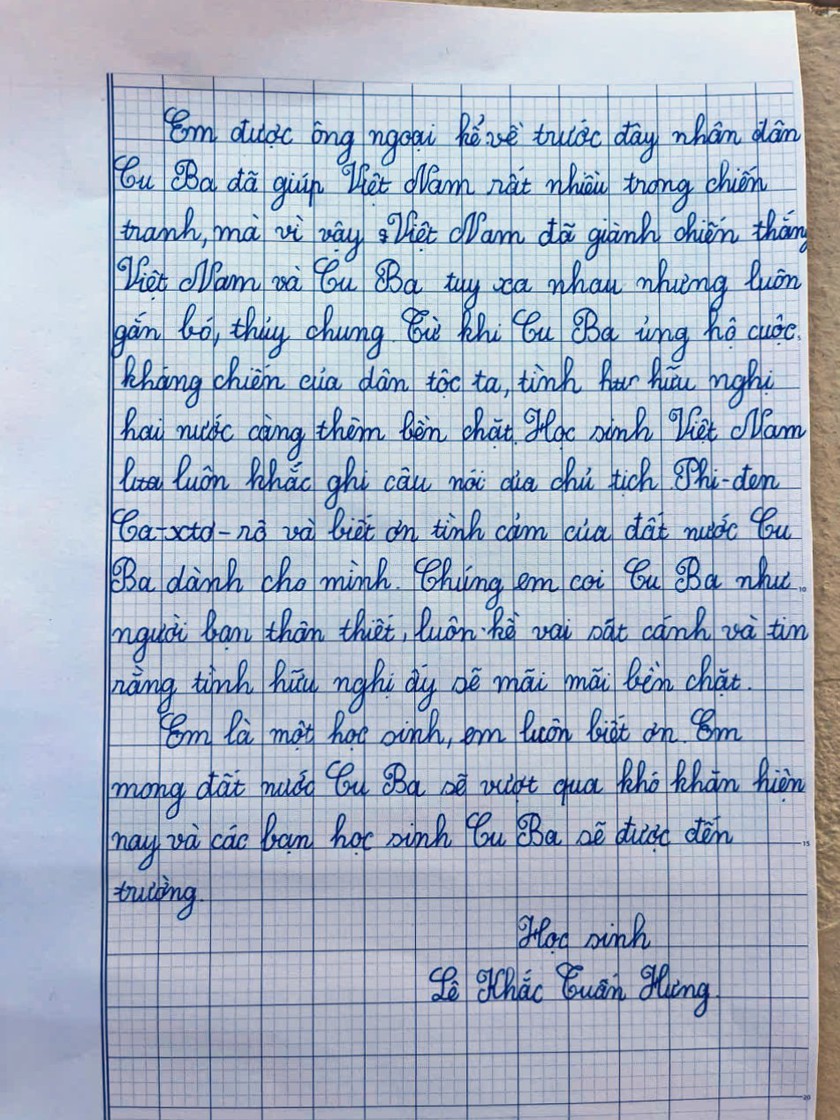 Em được ông ngoại kể về trước đây nhân dân
Cu Ba đã giúp Việt Nam rất nhiều trong chiến
tranh, mà vì vậy Việt Nam đã giành chiến thắng
Việt Nam và Cu Ba tuy xa nhau nhưng luôn
gắn bó, thủy chung. Từ khi Cu Ba ủng hộ cuộc
kháng chiến của dân tộc ta, tình hữu nghị
hai nước càng thêm bền chặt. Học sinh Việt Nam
luôn khắc ghi câu nói của chủ tịch Phi-đen
Ca-xtơ-rô và biết ơn tình cảm của đất nước Cu
Ba dành cho mình. Chúng em coi Cu Ba như
người bạn thân thiết, luôn kề vai sát cánh và tin
rằng tình hữu nghị ấy sẽ mãi mãi bền chặt.
Em là một học sinh, em luôn biết ơn. Em
mong đất nước Cu Ba sẽ vượt qua khó khăn hiện
nay và các bạn học sinh Cu Ba sẽ được đến
trường.
Học sinh
Lê Khắc Tuấn Hưng.
10
15
20